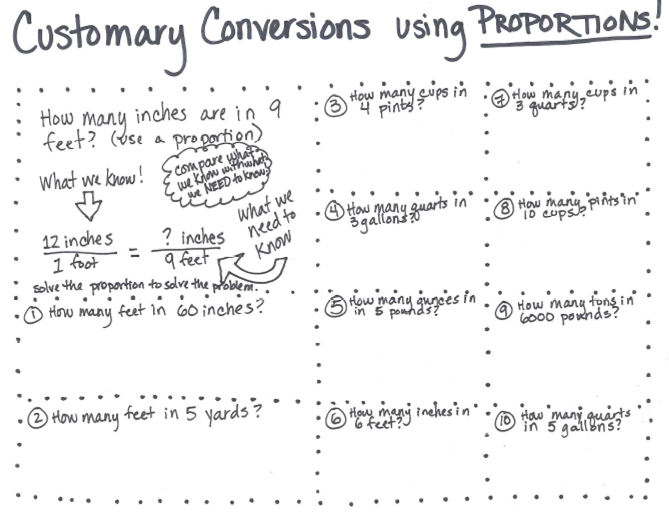 Customary Conversions using PROPORTIONS!
How many inches are in 9
feet? (use a proportion)
What we know!
compare what
we know with what
we NEED to know!
12 inches
1 foot
=
? inches
9 feet
what we
need to
know
solve the proportion to solve the problem.
① How many feet in 60 inches?
② How many feet in 5 yards?
③ How many cups in
4 pints?
④ How many quarts in
3 gallons?
⑤ How many ounces in
in 5 pounds?
⑥ How many inches in
6 feet?
⑦ How many cups in
3 quarts?
⑧ How many pints in
10 cups?
⑨ How many tons in
6000 pounds?
⑩ How many quarts
in 5 gallons?